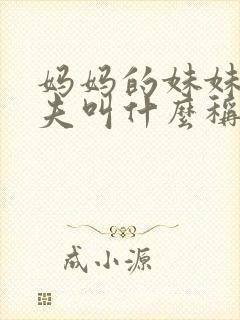 妈妈的妹妹
夫叫什麼稱
成小源